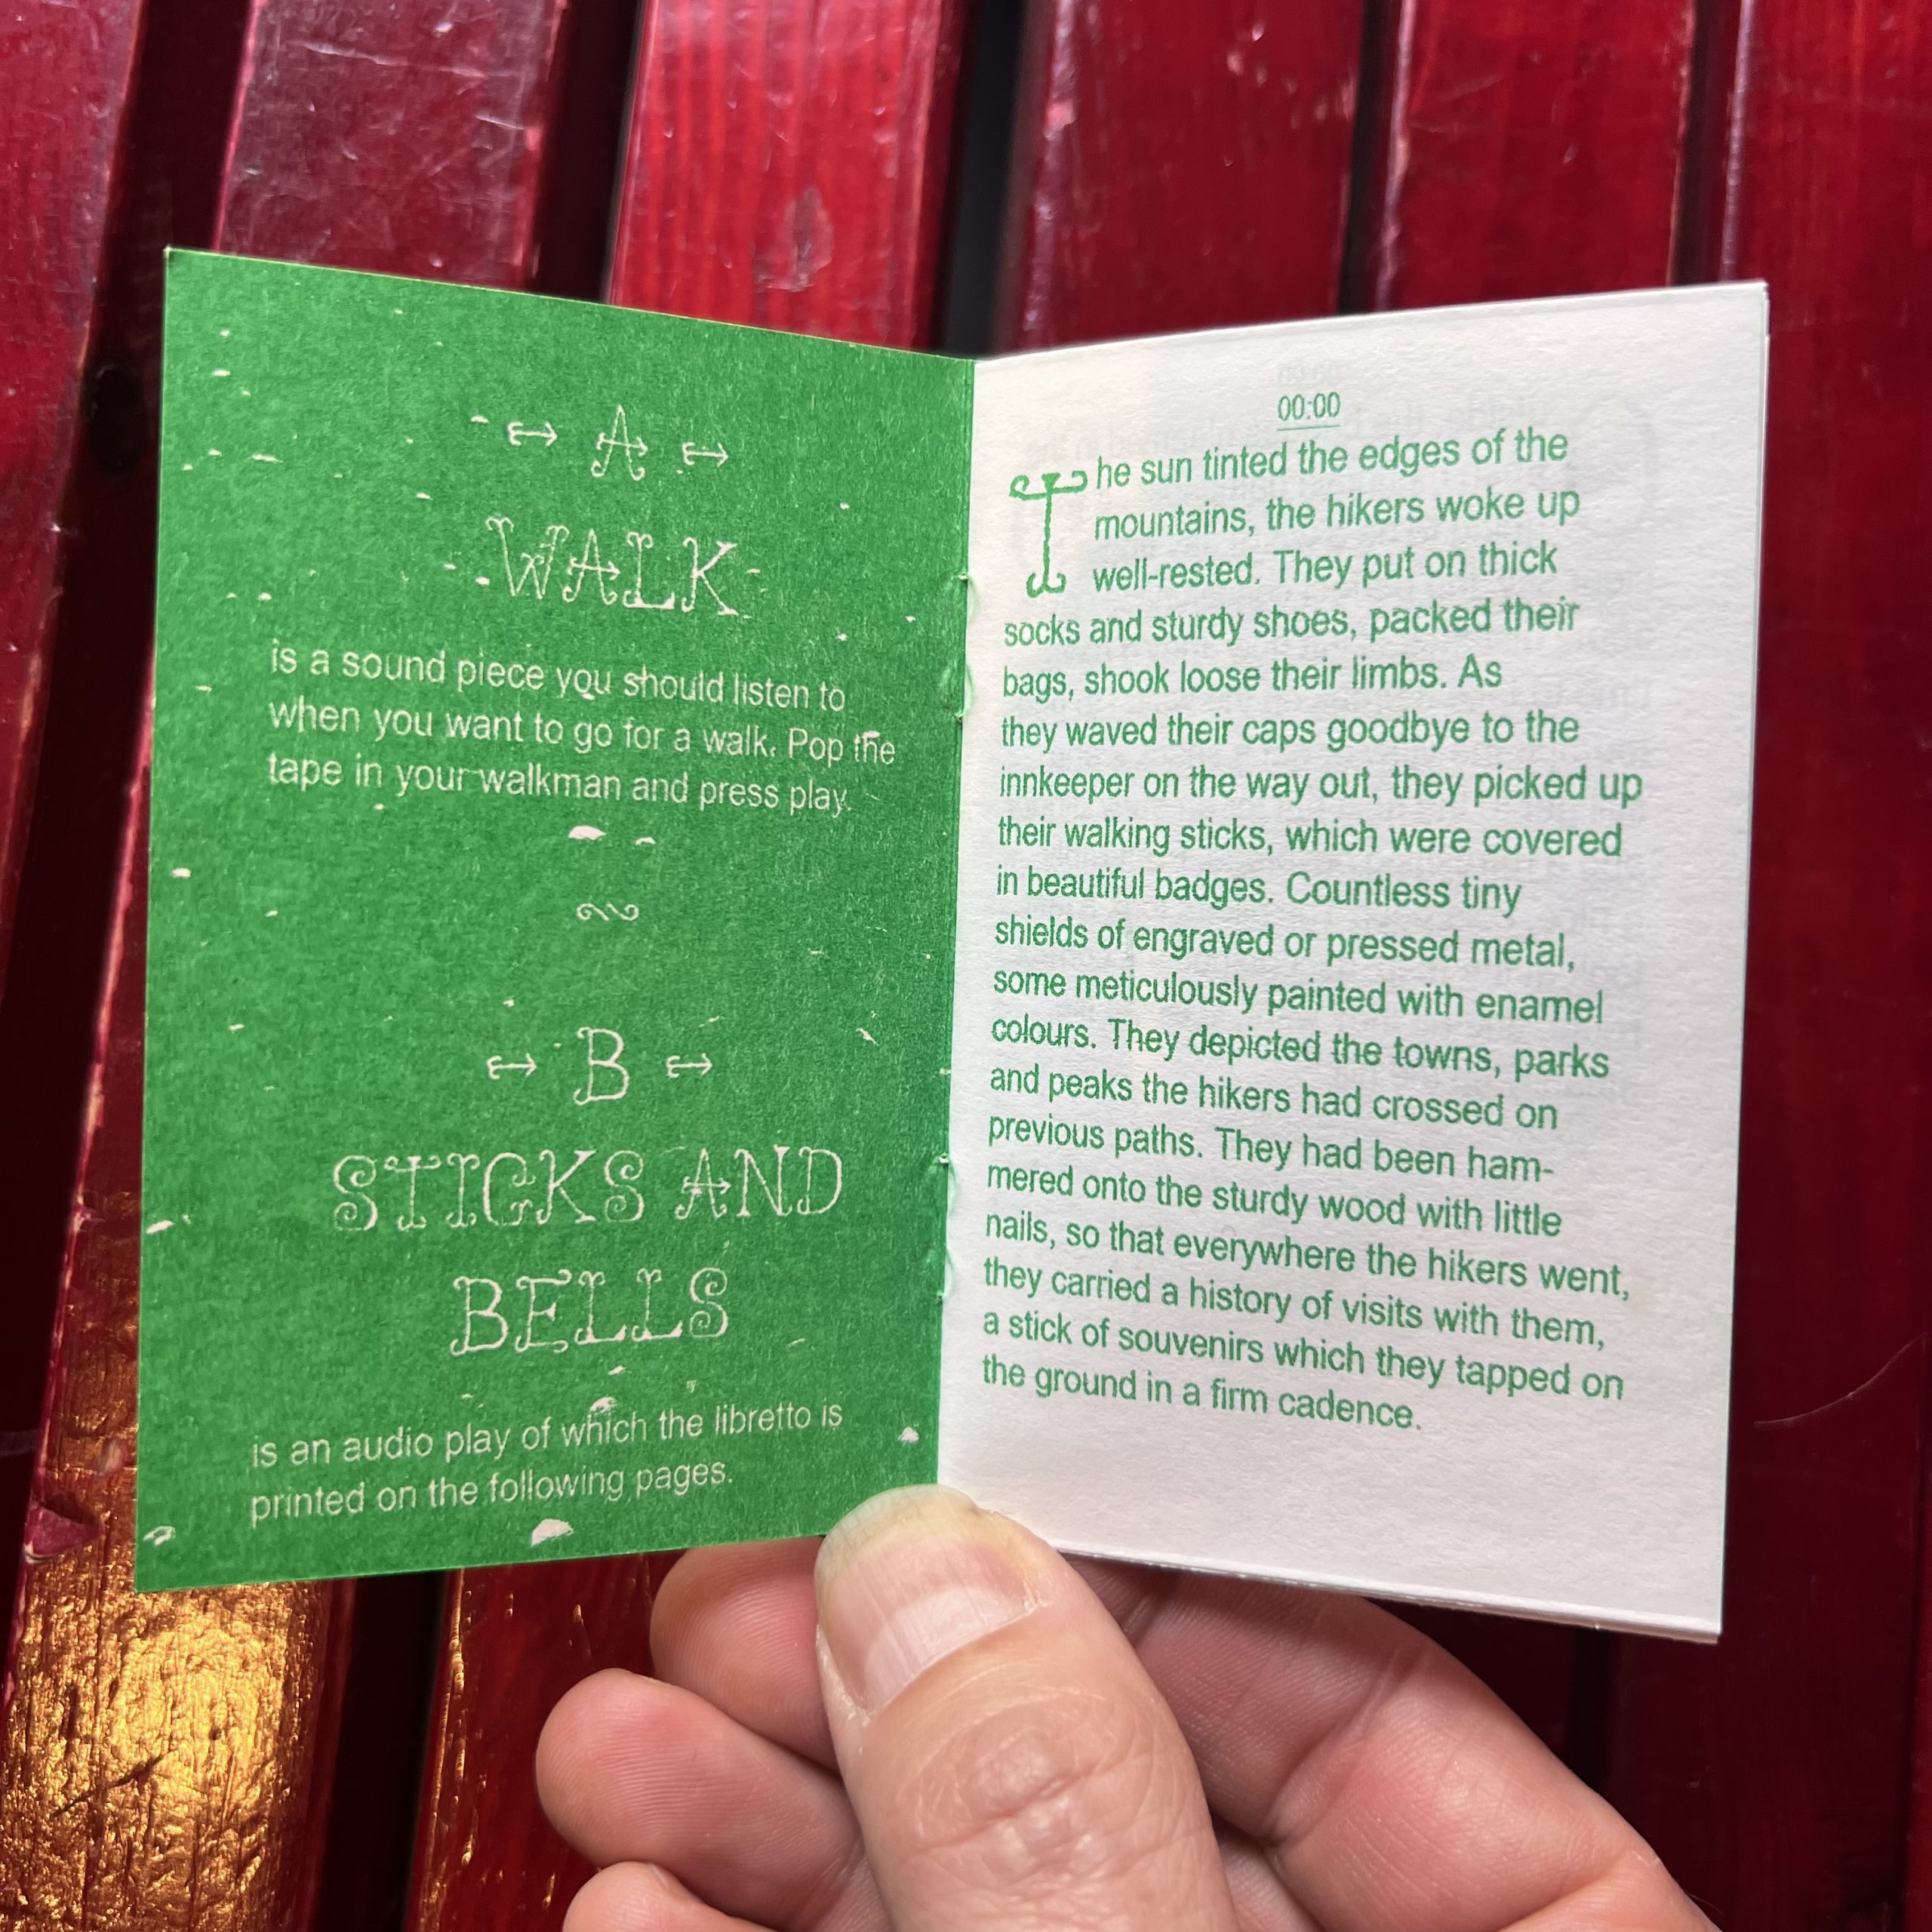 A
WALK
is a sound piece you should listen to
when you want to go for a walk. Pop the
tape in your walkman and press play.
B
STICKS AND
BELLS
is an audio play of which the libretto is
printed on the following pages.
00:00
The sun tinted the edges of the
mountains, the hikers woke up
well-rested. They put on thick
socks and sturdy shoes, packed their
bags, shook loose their limbs. As
they waved their caps goodbye to the
innkeeper on the way out, they picked up
their walking sticks, which were covered
in beautiful badges. Countless tiny
shields of engraved or pressed metal,
some meticulously painted with enamel
colours. They depicted the towns, parks
and peaks the hikers had crossed on
previous paths. They had been ham-
mered onto the sturdy wood with little
nails, so that everywhere the hikers went,
they carried a history of visits with them,
a stick of souvenirs which they tapped on
the ground in a firm cadence.